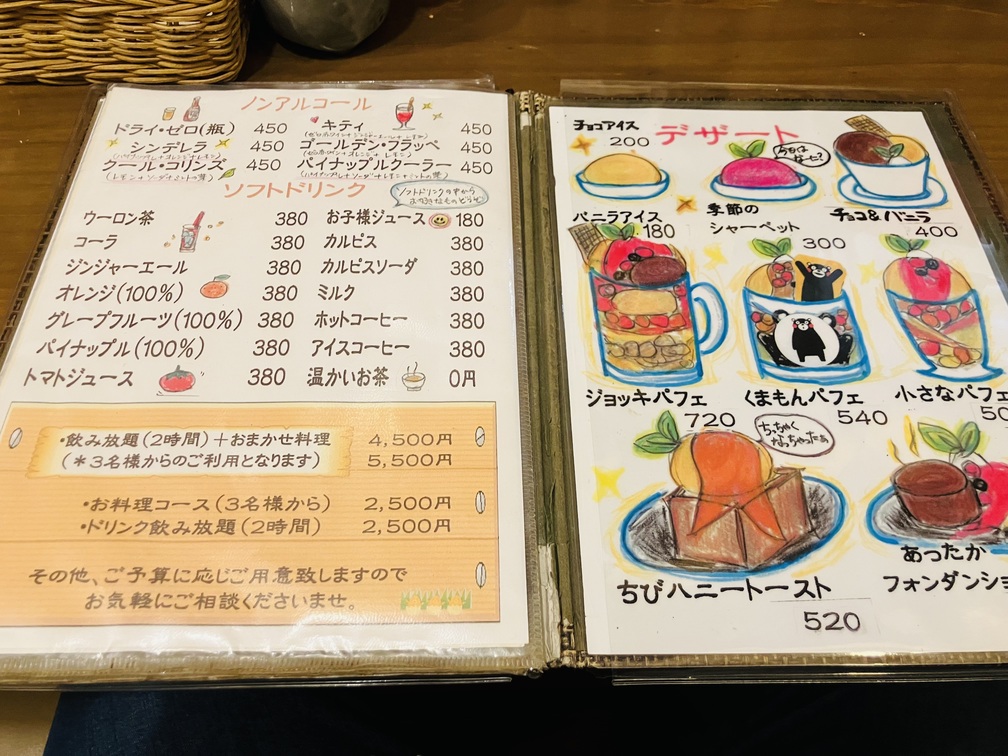 ノンアルコール
ドライ・ゼロ(瓶) 450
シンデレラ 450
クール・コリンズ 450
(レモン+ソーダ+ミントの葉)
キティ 450
ゴールデン・フラッペ 450
パイナップルクーラー 450
ソフトドリンク
ソフトドリンクの中から
お好きなものどうぞ
ウーロン茶 380
コーラ 380
ジンジャーエール 380
オレンジ(100%) 380
グレープフルーツ(100%) 380
パイナップル(100%) 380
トマトジュース 380
お子様ジュース 180
カルピス 380
カルピスソーダ 380
ミルク 380
ホットコーヒー 380
アイスコーヒー 380
温かいお茶 0円
・飲み放題(2時間)+おまかせ料理 4,500円
(*3名様からのご利用となります) 5,500円
・お料理コース(3名様から) 2,500円
・ドリンク飲み放題(2時間) 2,500円
その他、ご予算に応じご用意致しますので
お気軽にご相談くださいませ。
デザート
チョコアイス
200
バニラアイス
180
今日は
なーに?
季節の
シャーベット
300
チョコ&バニラ
400
ジョッキパフェ
720
くまもんパフェ
540
小さなパフェ
50
ちっちゃく
なっちゃったぁ
ちびハニートースト
520
あったか
フォンダンショ